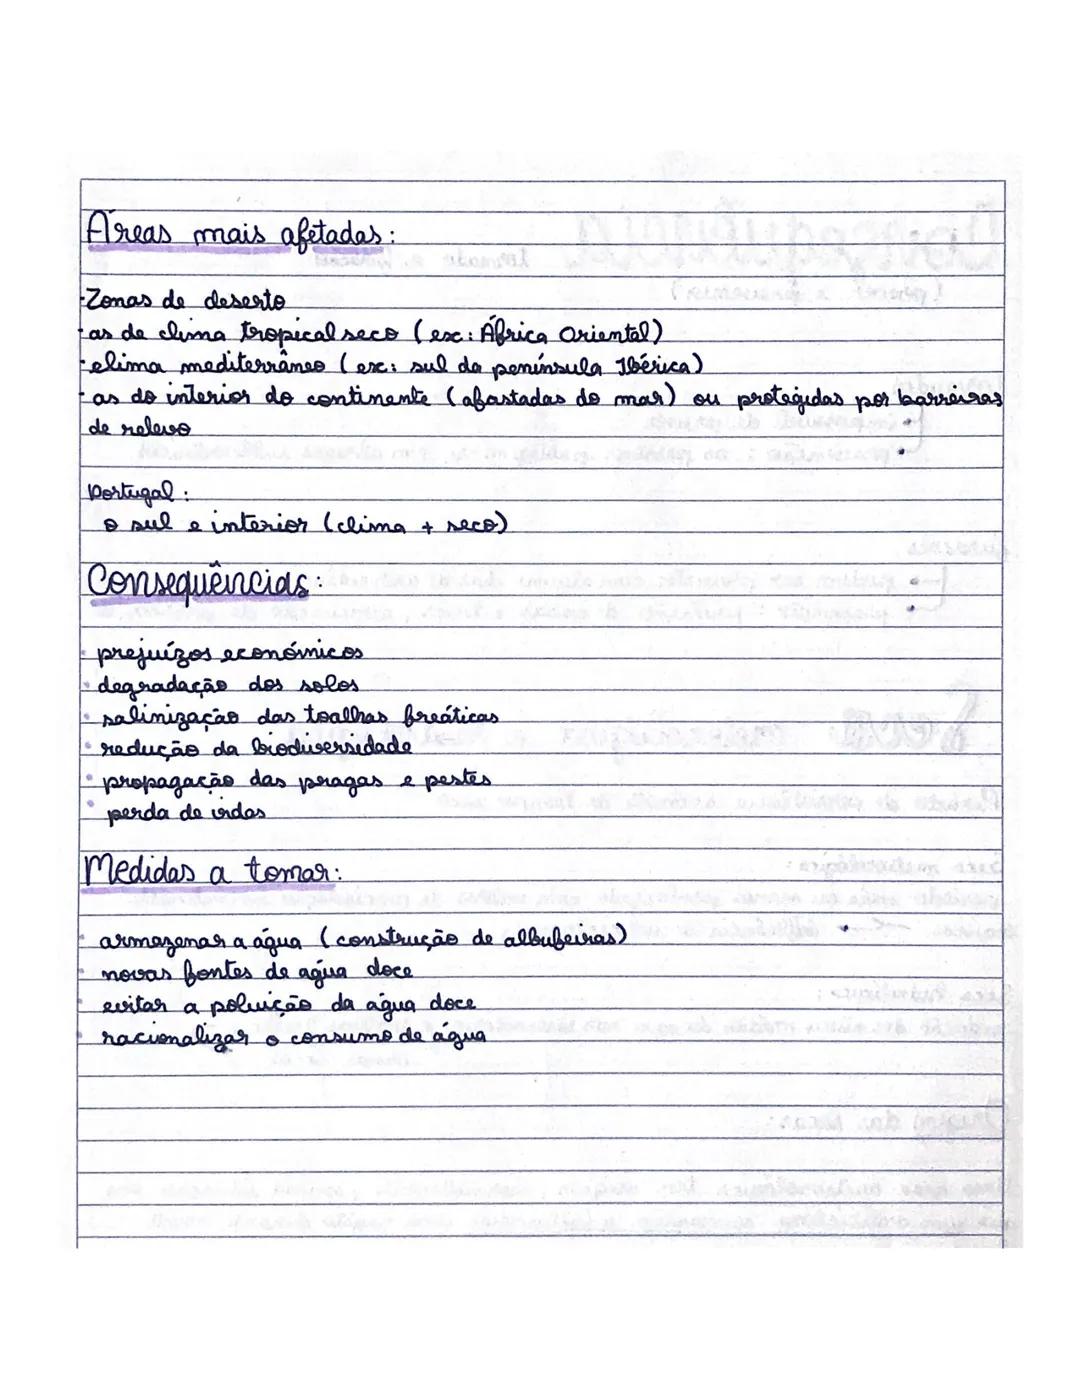 Áreas mais afetadas:
-Zonas de deserto
-as de clima tropical seco (ex: África Oriental)
-clima mediterrâneo (ex: sul da península Ibérica)
-as do interior do continente (afastadas do mar) ou protegidas por barreiras
de relevo
Portugal:
o sul e interior (clima + seco)
Consequências:
• prejuízos económicos
• degradação dos solos
• salinização das toalhas freáticas
• redução da biodiversidade
• propagação das pragas e pestes
• perda de vidas
Medidas a tomar:
• armazenar a água (construção de albufeiras)
• novas fontes de água doce
• evitar a poluição da água doce
• racionalizar o consumo de água